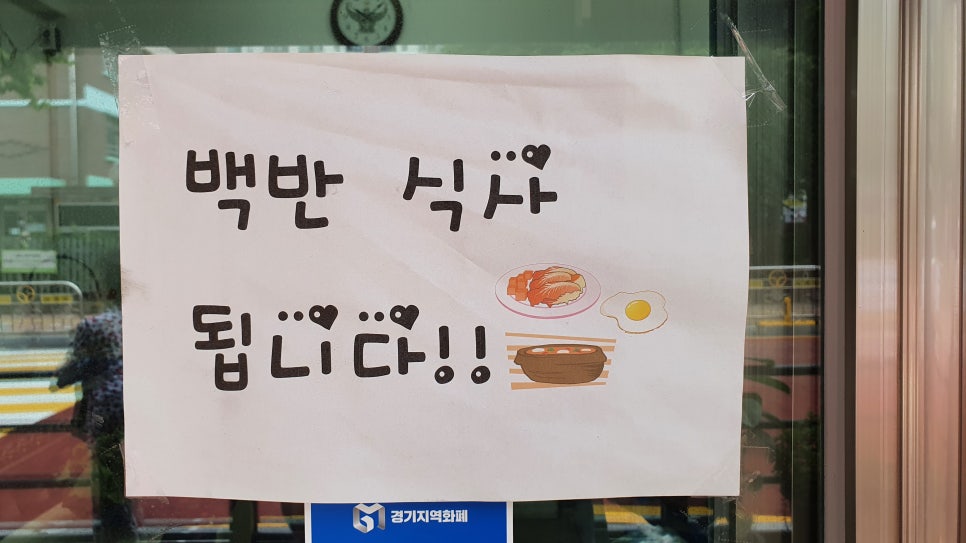 백반 식사
됩니다!!
경기지역화폐